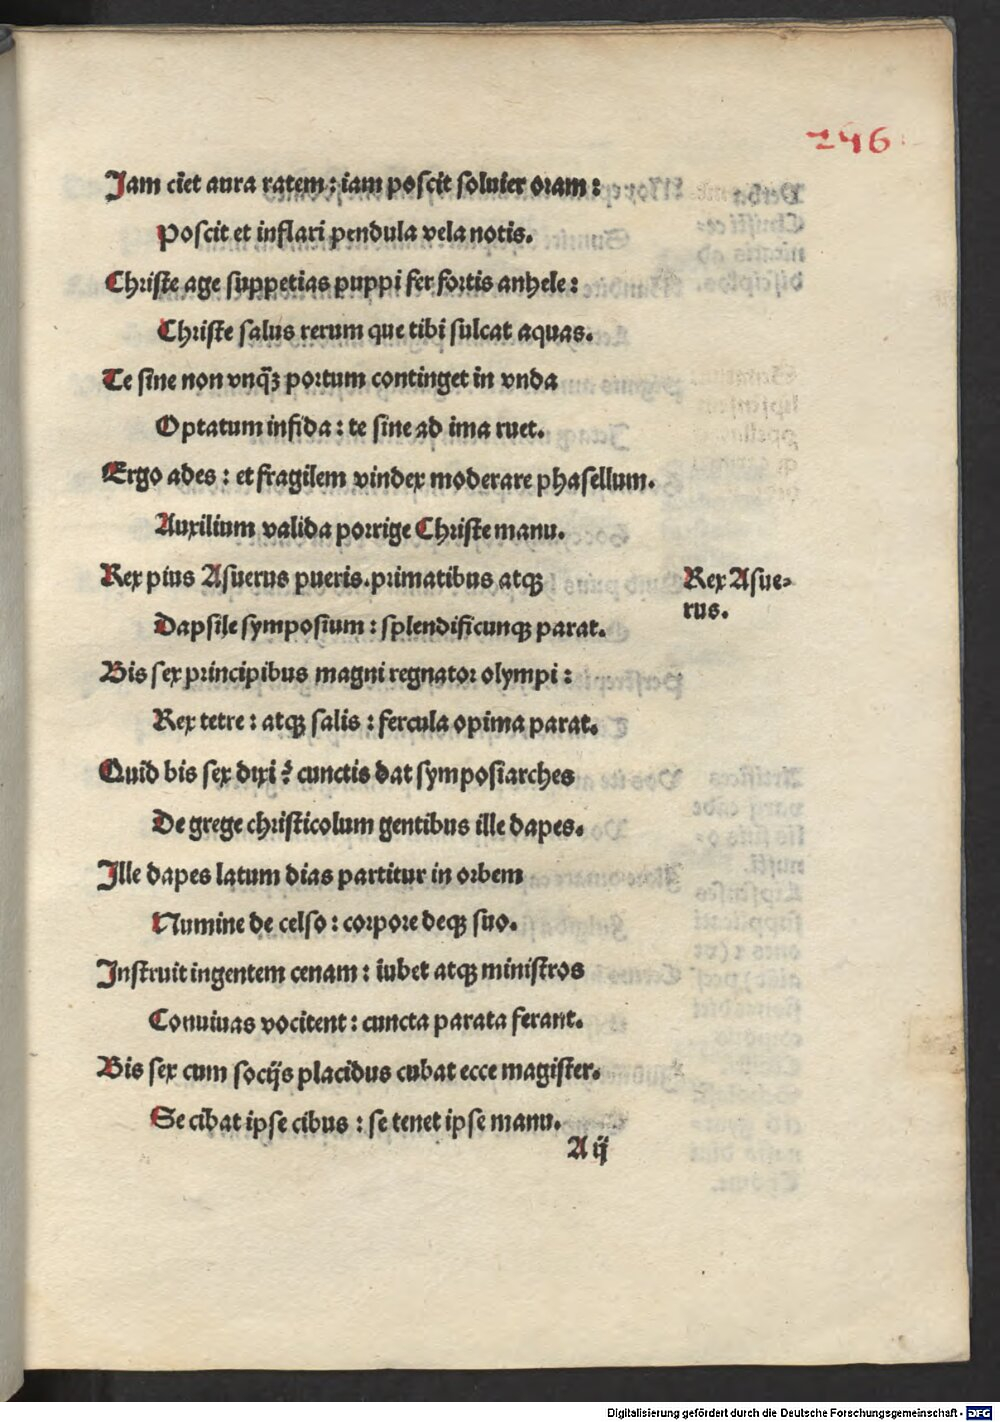 246
Jam ciet aura ratem : iam poscit soluier oram :
Poscit et inflari pendula vela notis.
Christe age suppetias puppi fer fortis anhele :
Christe salus rerum que tibi sulcat aquas.
Te sine non vnq̄ꝫ portum continget in vnda
Optatum infida : te sine ad ima ruet.
Ergo ades : et fragilem vindex moderare phasellum.
Auxilium valida porrige Christe manu.
Rex pius Asuerus pueris. primatibus atqꝫ
Rex Asue⸗
rus.
Dapsile symposium : splendificunqꝫ parat.
Bis sex principibus magni regnator olympi :
Rex tetre : atqꝫ salis : fercula opima parat.
Quid bis sex dixi ? cunctis dat symposiarches
De grege christicolum gentibus ille dapes.
Ille dapes latum dias partitur in orbem
Numine de celso : corpore deqꝫ suo.
Instruit ingentem cenam : iubet atqꝫ ministros
Conuiuas vocitent : cuncta parata ferant.
Bis sex cum socijs placidus cubat ecce magister.
Se cibat ipse cibus : se tenet ipse manu.
A ij
Digitalisierung gefördert durch die Deutsche Forschungsgemeinschaft - DFG